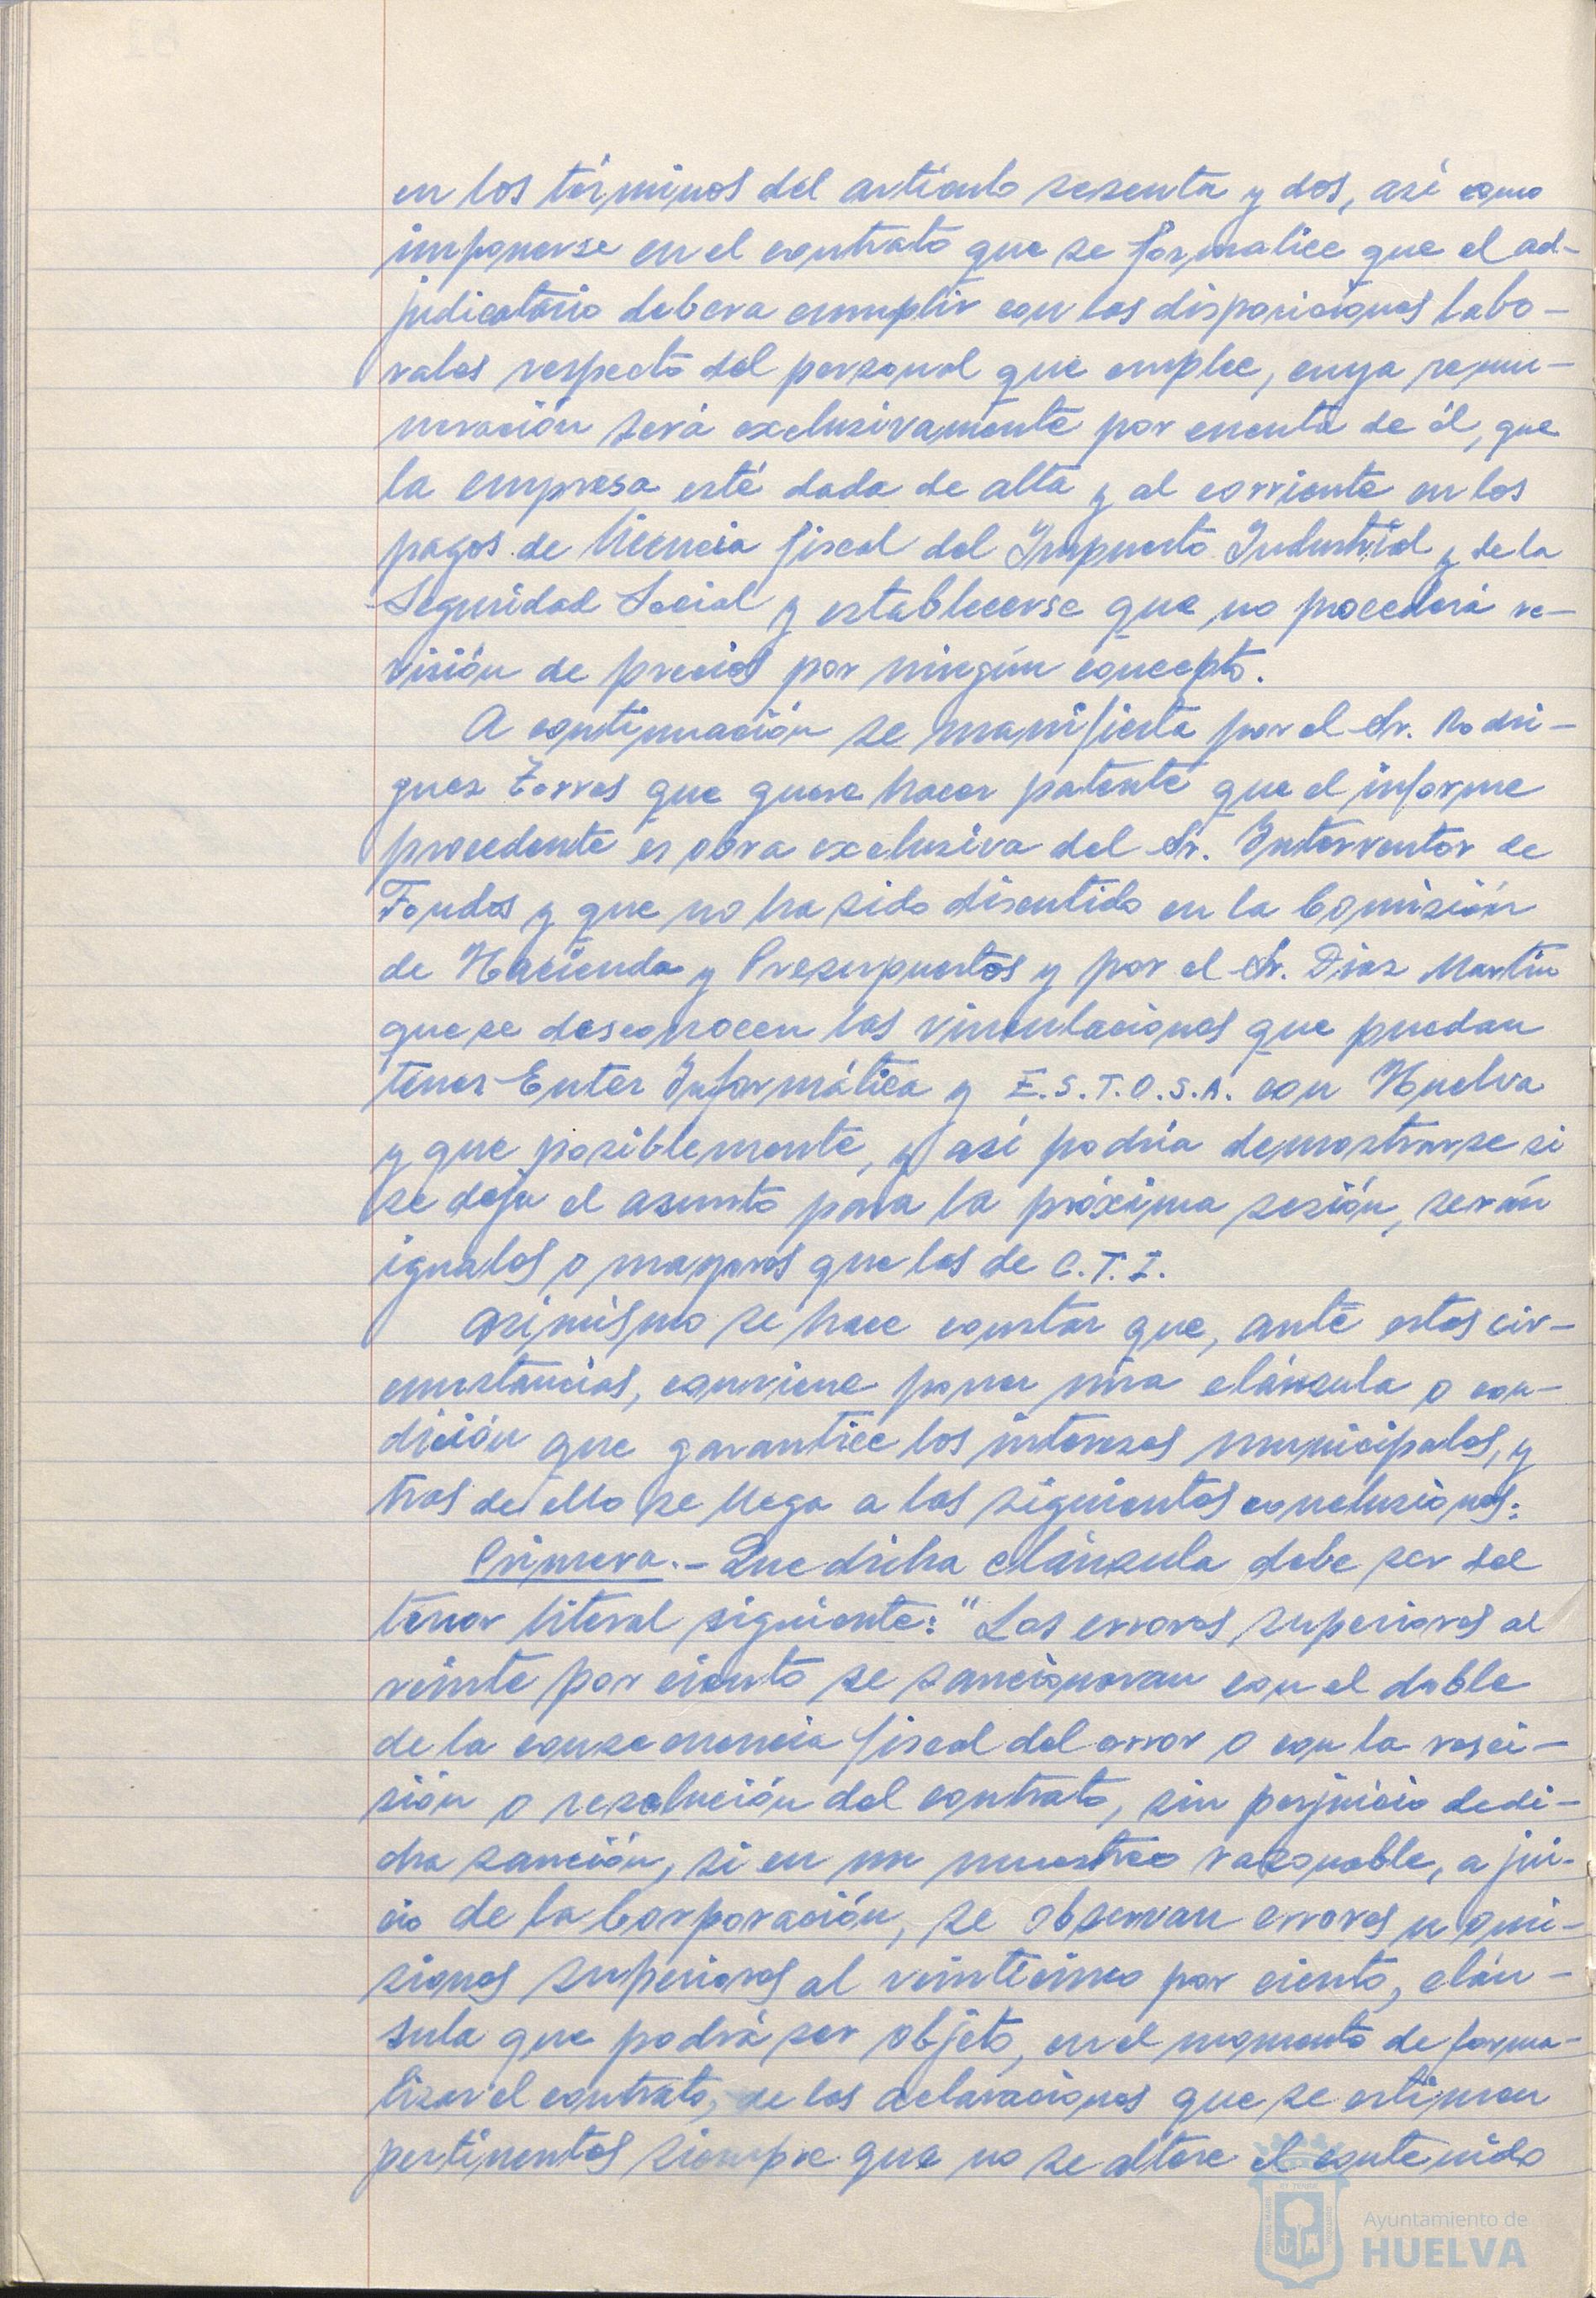 en los términos del artículo sesenta y dos, así como
imponerse en el contrato que se formalice que el ad-
judicatario debera cumplir con las disposiciones labo-
rales respecto del personal que emplee, cuya remu-
neración será exclusivamente por cuenta de él, que
la empresa esté dada de alta y al corriente en los
pagos de licencia fiscal del Impuesto Industrial y de la
Seguridad Social y establecerse que no procederá re-
visión de precios por ningún concepto.
A continuación se manifiesta por el Sr. Rodri-
guez Torres que quere hacer patente que el informe
procedente es obra exclusiva del Sr. Interventor de
Fondos y que no ha sido discutido en la Comisión
de Hacienda y Presupuestos y por el Sr. Diaz Martin
que se desconocen las vinculaciones que puedan
tener Enter Informática y E.S.T.O.S.A. con Huelva
y que posiblemente, y así podría demostrarse si
se deja el asunto para la próxima sesión, serán
iguales o mayores que las de C.T.I.
Asimismo se hace constar que, ante estas cir-
cunstancias, conviene poner una cláusula o con-
dición que garantice los intereses municipales, y
tras de ello se llega a las siguientes conclusiones:
Primera.- Que dicha cláusula debe ser del
tenor literal siguiente: "Los errores superiores al
veinte por ciento se sancionaran con el doble
de la consecuencia fiscal del error o con la resci-
sión o resolución del contrato, sin perjuicio de di-
cha sanción, si en un muestreo razonable, a jui-
cio de la Corporación, se observan errores u omi-
siones superiores al veinticinco por ciento, cláu-
sula que podrá ser objeto, en el momento de forma-
lizar el contrato, de las aclaraciones que se estimen
pertinentes siempre que no se altere el contenido
Ayuntamiento de
HUELVA